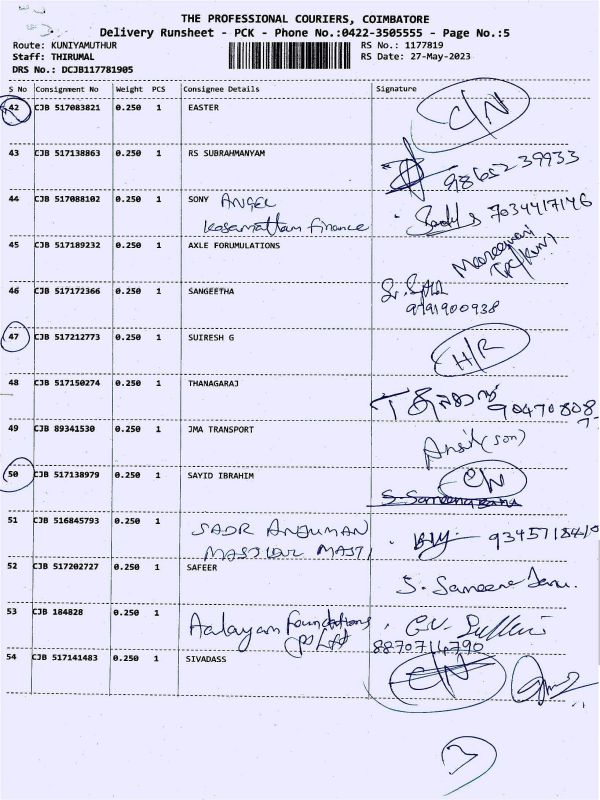 THE PROFESSIONAL COURIERS, COIMBATORE
Delivery Runsheet - PCK - Phone No.:0422-3505555 - Page No.:5
Route: KUNIYAMUTHUR RS No.: 1177819
Staff: THIRUMAL RS Date: 27-May-2023
DRS No.: DCJB117781905
S No Consignment No Weight PCS Consignee Details Signature
42 CJB 517083821 0.250 1 EASTER C/N
43 CJB 517138863 0.250 1 RS SUBRAHMANYAM
98652 39933
44 CJB 517088102 0.250 1 SONY ANGEL 7034417146
Kosamattam Finance
45 CJB 517189232 0.250 1 AXLE FORUMULATIONS
46 CJB 517172366 0.250 1 SANGEETHA
9791900938
47 CJB 517212773 0.250 1 SUIRESH G H/R
48 CJB 517150274 0.250 1 THANAGARAJ
90470808
49 CJB 89341530 0.250 1 JMA TRANSPORT
(son)
50 CJB 517138979 0.250 1 SAYID IBRAHIM C/N
51 CJB 516845793 0.250 1 SADR ANJUMAN
52 CJB 517202727 0.250 1 SAFEER S. Sameena Banu.
53 CJB 184828 0.250 1 Aalayam Foundations
(P) Ltd 8870714790
54 CJB 517141483 0.250 1 SIVADASS C/N